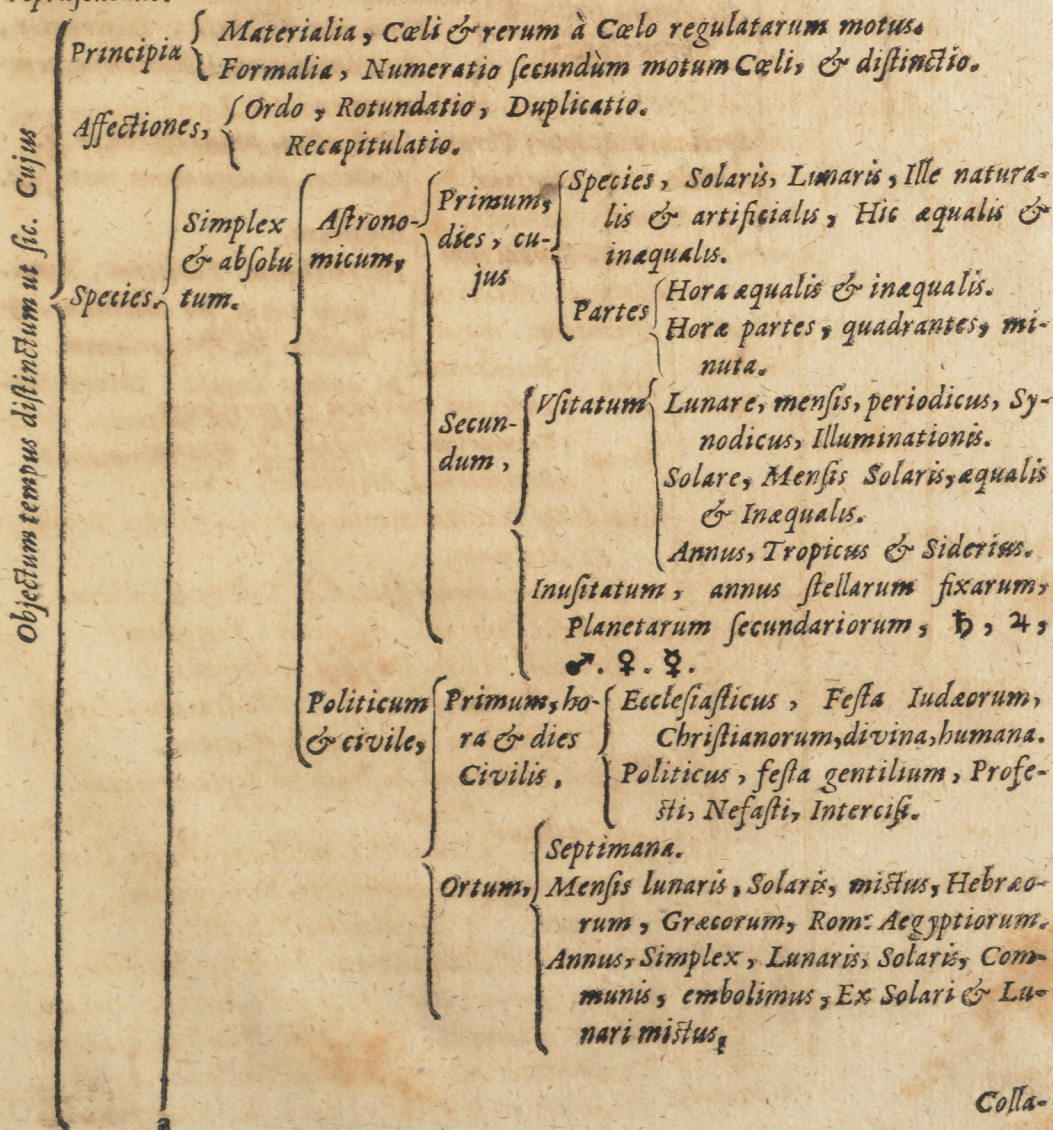 Objectum tempus distinctum ut sic. Cujus
Principia
Materialia, Cœli & rerum à Cœlo regulatarum motus.
Formalia, Numeratio ſecundùm motum Cœli, & diſtinctio.
Affectiones,
Ordo, Rotundatio, Duplicatio.
Recapitulatio.
Species.
Simplex
& abſolu
tum.
Aſtrono-
micum,
Primum,
dies, cu-
jus
Species, Solaris, Lunaris, Ille natura-
lis & artificialis, Hic æqualis &
inæqualis.
Partes
Hora æqualis & inæqualis.
Horæ partes, quadrantes, mi-
nuta.
Secun-
dum,
Vſitatum
Lunare, menſis, periodicus, Sy-
nodicus, Illuminationis.
Solare, Menſis Solaris, æqualis
& Inæqualis.
Annus, Tropicus & Siderius.
Inuſitatum, annus ſtellarum fixarum,
Planetarum ſecundariorum, ♄, ♃,
♂. ♀. ☿.
Politicum
& civile,
Primum, ho-
ra & dies
Civilis,
Eccleſiaſticus, Feſta Iudæorum,
Chriſtianorum, divina, humana.
Politicus, feſta gentilium, Profe-
ſti, Nefaſti, Interciſi.
Ortum,
Septimana.
Menſis lunaris, Solaris, miſtus, Hebræo-
rum, Græcorum, Rom: Aegyptiorum.
Annus, Simplex, Lunaris, Solaris, Com-
munis, embolimus, Ex Solari & Lu-
nari miſtus,
a
Colla-